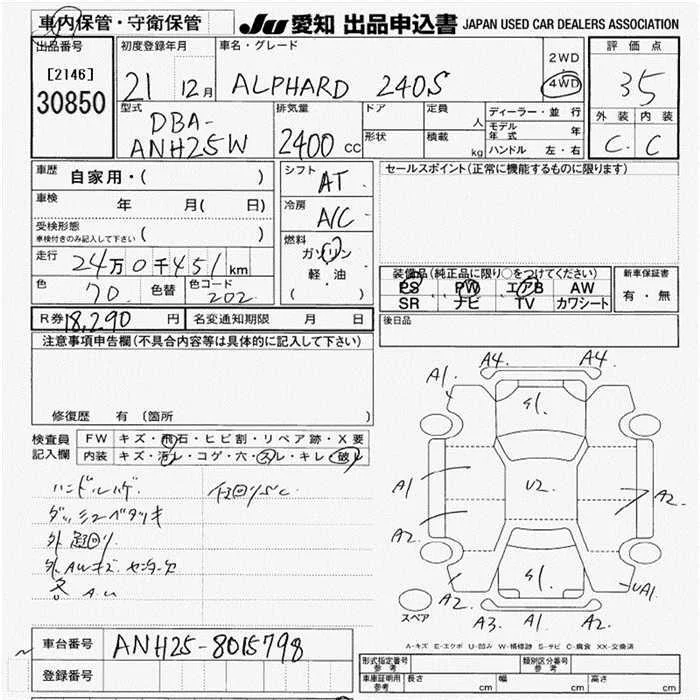 車内保管・守衛保管
JU 愛知 出品申込書 JAPAN USED CAR DEALERS ASSOCIATION
出品番号
[2146]
30850
初度登録年月
21 12月
車名・グレード
ALPHARD 240S
2WD
4WD
評価点
3.5
外装 内装
C. C
型式
DBA-
ANH25W
排気量
2400 cc
ドア
形状
定員 人
積載 kg
ディーラー・並行
モデル年式 年
ハンドル 左・右
車歴 自家用・( )
車検 年 月( 日)
受検形態
車検付きのみ記入して下さい ( )
走行 24万0千451km
色 70. 色替
色コード 202
シフト AT
冷房 A/C
燃料
ガソリン
軽・油
( )
セールスポイント(正常に機能するものに限ります)
装備品(純正品に限り○をつけてください)
PS PW エアB AW
SR ナビ TV カワシート
新車保証書
有・無
R券 18,290 円 名変通知期限 月 日
後日品
注意事項申告欄(不具合内容等は具体的に記入して下さい)
修復歴 有 (箇所 )
検査員記入欄
FW キズ・飛石・ヒビ割・リペア跡・X要
内装 キズ・汚レ・コゲ・穴・スレ・キレ・破レ
ハンドルハゲ.
ダッシュベタツキ
A1. A4. A4.
A1 U2. A2.
A2.
A2. A3. A1 A2. A1
スペア
A-キズ E-エクボ U-凹み W-補修跡 S-サビ C-腐食 XX-交換済
車台番号 ANH25-8015798
登録番号
形式指定番号 参考 類別区分番号 参考
車庫証明用 参考 長さ cm 幅 cm 高さ cm